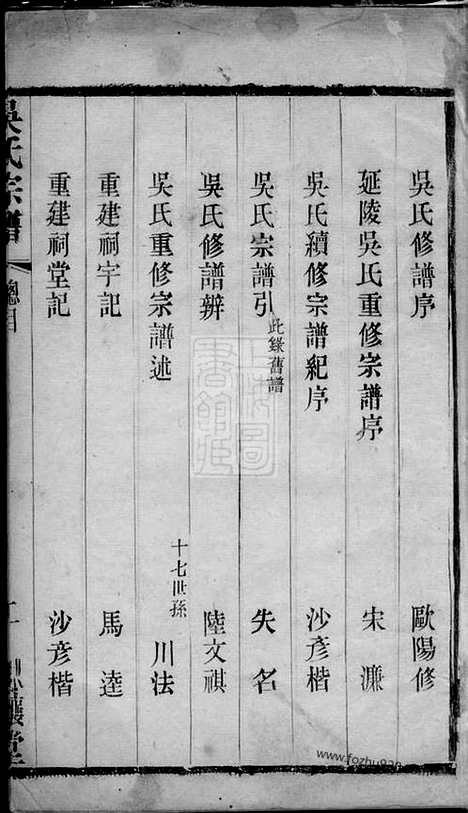 吳氏修譜序 歐陽修
延陵吳氏重修宗譜序 宋濂
吳氏續修宗譜紀序 沙彥楷
吳氏宗譜引 此錄舊譜 失名
吳氏修譜辨 陸文祺
吳氏重修宗譜述 十七世孫 川法
重建祠宇記 馬逵
重建祠堂記 沙彥楷
吳氏宗譜 總目
www.fozhu920